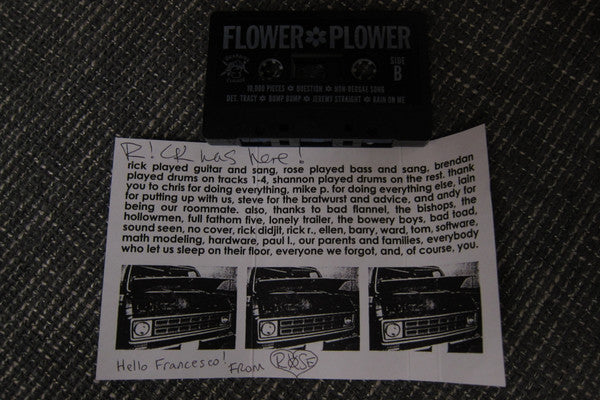 FLOWER PLOWER
SIDE
B
10,000 PIECES QUESTION NON-REGGAE SONG
DET. TRACY BUMP BUMP JEREMY STRAIGHT RAIN ON ME
R!CK was here!
rick played guitar and sang, rose played bass and sang, brendan
played drums on tracks 1-4, shannon played drums on the rest. thank
you to chris for doing everything, mike p. for doing everything else, iain
for putting up with us, steve for the bratwurst and advice, and andy for
being our roommate. also, thanks to bad flannel, the bishops, the
hollowmen, full fathom five, lonely trailer, the bowery boys, bad toad,
sound seen, no cover, rick didjit, rick r., ellen, barry, ward, tom, software,
math modeling, hardware, paul l., our parents and families, everybody
who let us sleep on their floor, everyone we forgot, and, of course, you.
Hello Francesco! FROM ROSE